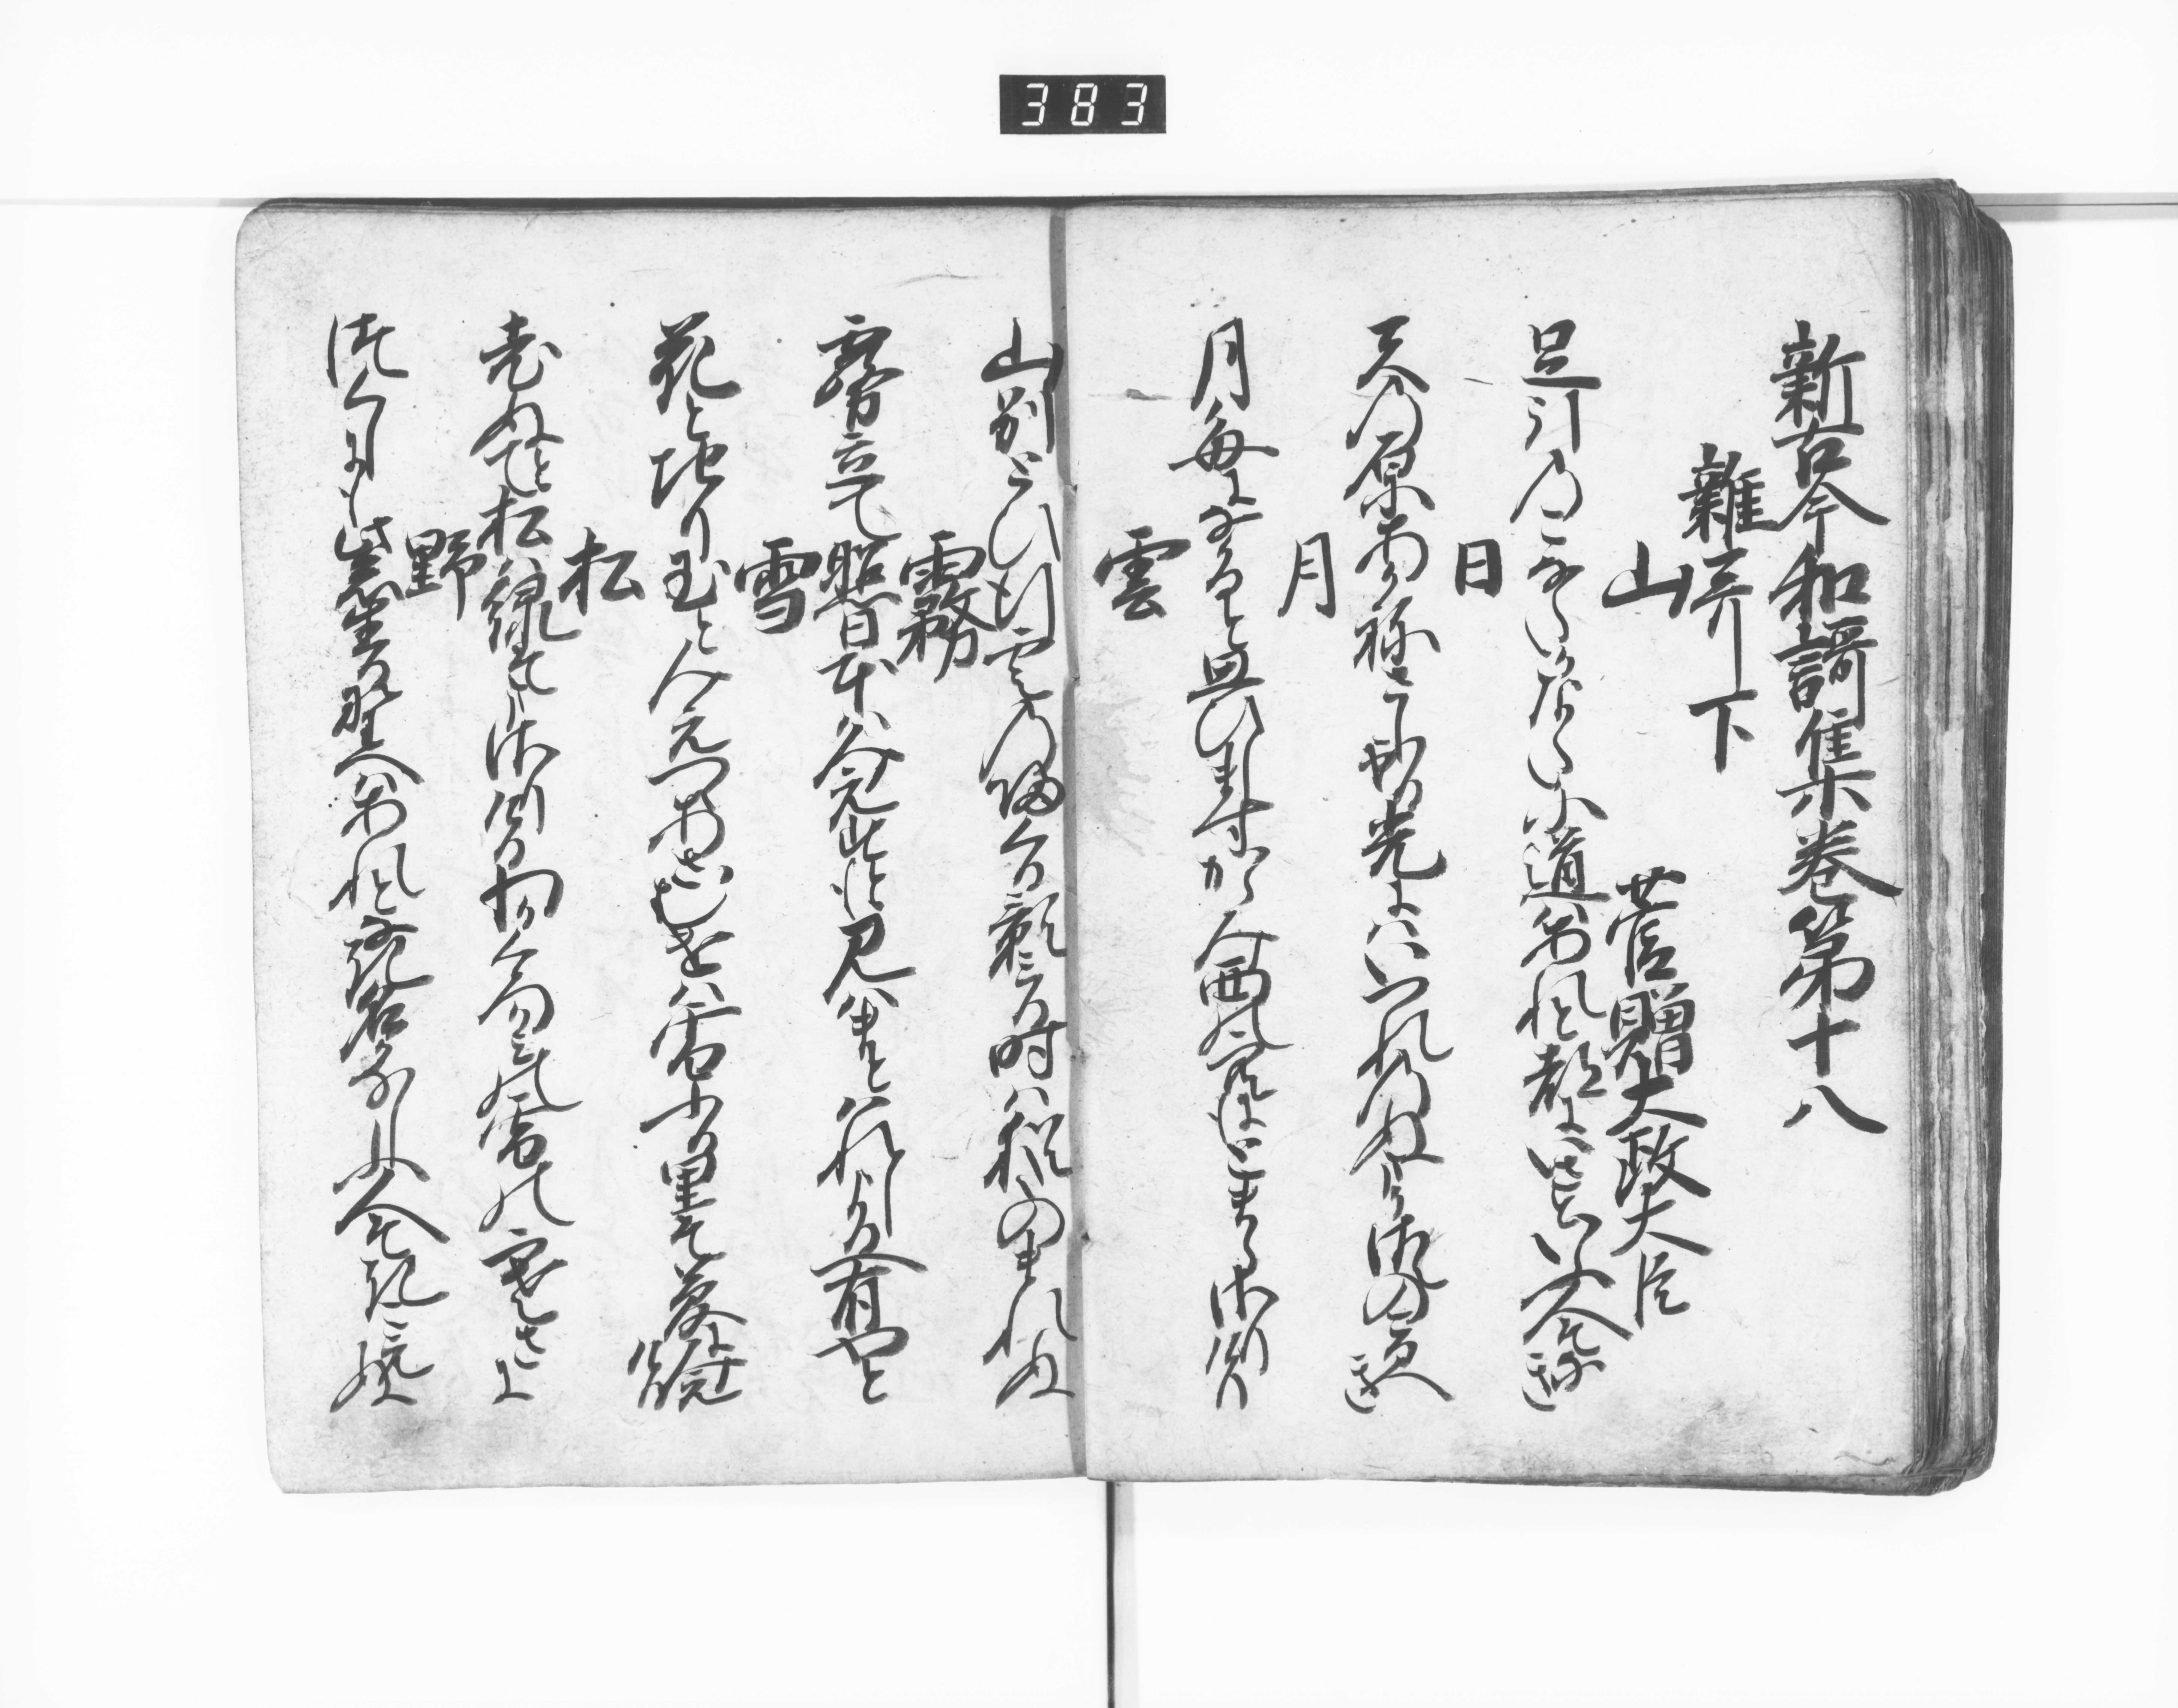 383
新古今和謌集巻第十八
雜哥下
山　菅贈太政大臣
足引のこなたかなたに道はあれと都へいさといふ人そなき
日
天の原あかねさし出る光にはいつれのぬまかさえ残へき
月
月毎になかると思ひしますかゝみ西の浦にもとまらさりけり
雲
山別とひ行雲の帰くる影みる時は猶たのまれぬ
霧
霧立て照日の本は見えすとも身はまとはれしよるへ有やと
雪
花と散り玉とみえつゝあさむけは雪ふる里そ夢に見ける
松
老ぬとて松は緑そまさりける我くろかみの雪の寒さに
野
つくしにも紫生る野へはあれと無名かなしふ人そ聞えぬ